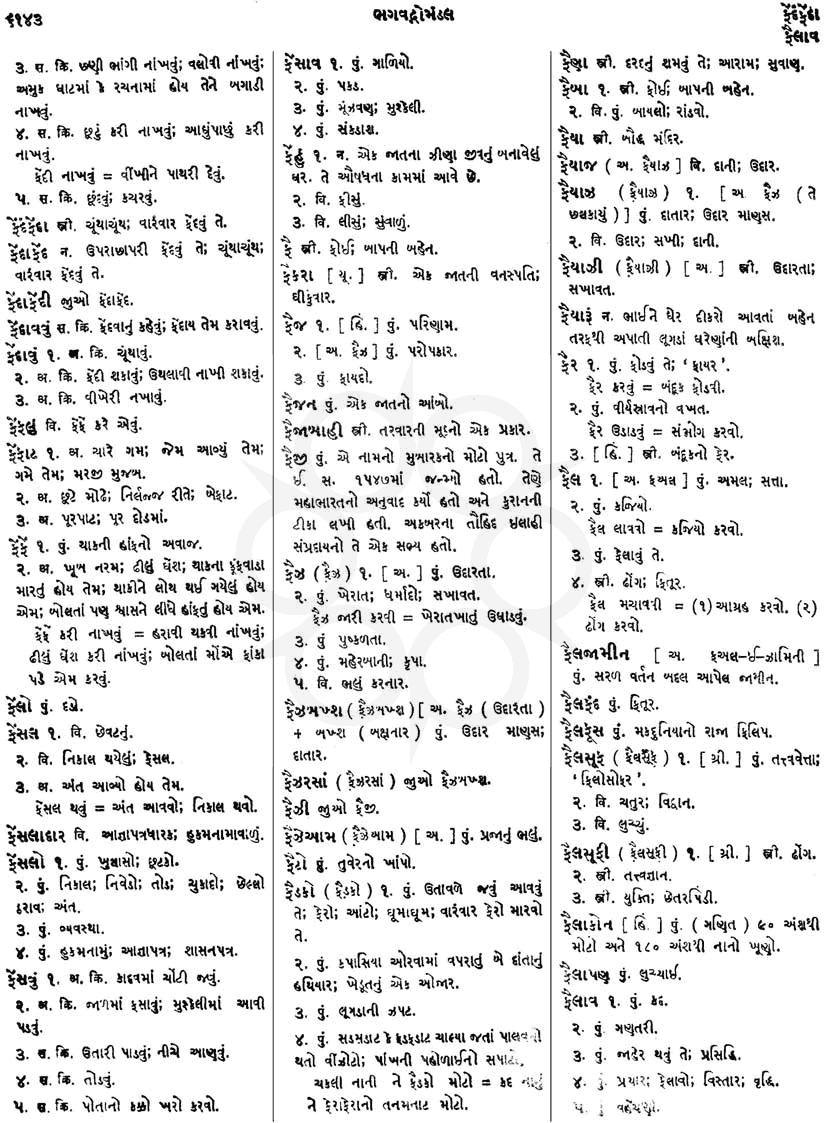 ૬૧૪૩
ભગવદ્ગોમંડલ
ફેંદંફેંદા
ફૈલાવ
૩. સ. ક્રિ. છણી ભાંગી નાંખવું; વલોવી નાંખવું;
અમુક ઘાટમાં કે રચનામાં હોય તેને બગાડી
નાખવું.
૪. સ. ક્રિ. છૂટું કરી નાખવું; આઘુંપાછું કરી
નાખવું.
ફેંદી નાખવું = વીંખીને પાથરી દેવું.
૫. સ. ક્રિ. છૂંદવું; કચરવું.
ફેંદંફેંદા સ્ત્રી. ચૂંથાચૂંથ; વારંવાર ફેંદવું તે.
ફેંદાફેંદ ન. ઉપરાછાપરી ફેંદવું તે; ચૂંથાચૂંથ;
વારંવાર ફેંદવું તે.
ફેંદાફેંદી જુઓ ફેંદાફેંદ.
ફેંદાવવું સ. ક્રિ. ફેંદવાનું કહેવું; ફેંદાય તેમ કરાવવું.
ફેંદાવું ૧. અ. ક્રિ. ચૂંથાવું.
૨. અ. ક્રિ. ફેંદી શકાવું; ઉથલાવી નાખી શકાવું.
૩. અ. ક્રિ. વીખેરી નખાવું.
ફેંફલું વિ. ફેંફેં કરે એવું.
ફેંફાટ ૧. અ. ચારે ગમ; જેમ આવ્યું તેમ;
ગમે તેમ; મરજી મુજબ.
૨. અ. છૂટે મોઢે; નિર્લજ્જ રીતે; બેફાટ.
૩. અ. પૂરપાટ; પૂર દોડમાં.
ફેંફેં ૧. પું. થાકની હાંફનો અવાજ.
૨. અ. ખૂબ નરમ; ઢીલું ઘેંશ; થાકના ફૂંફવાડા
મારતું હોય તેમ; થાકીને લોથ થઈ ગયેલું હોય
એમ; બોલતાં પણ શ્વાસને લીધે હાંફતું હોય એમ.
ફેંફેં કરી નાખવું = હરાવી થકવી નાંખવું;
ઢીલું ઘેંશ કરી નાંખવું; બોલતાં મોંએ ફાંફા
પડે એમ કરવું.
ફેંલો પું. દગો.
ફેંસલ ૧. વિ. છેવટનું.
૨. વિ. નિકાલ થયેલું; ફેસલ.
૩. અ. અંત આવ્યો હોય તેમ.
ફેંસલ થવું = અંત આવવો; નિકાલ થવો.
ફેંસલાદાર વિ. આજ્ઞાપત્રધારક; હુકમનામાવાળું.
ફેંસલો ૧. પું. ખુલાસો; છૂટકો.
૨. પું. નિકાલ; નિવેડો; તોડ; ચુકાદો; છેલ્લો
ઠરાવ; અંત.
૩. પું. વ્યવસ્થા.
૪. પું. હુકમનામું; આજ્ઞાપત્ર; શાસનપત્ર.
ફેંસવું ૧. અ. ક્રિ. કાદવમાં ચોંટી જવું.
૨. અ. ક્રિ. જાળમાં ફસાવું; મુશ્કેલીમાં આવી
પડવું.
૩. સ. ક્રિ. ઉતારી પાડવું; નીચે આણવું.
૪. સ. ક્રિ. તોડવું.
૫. સ. ક્રિ. પોતાનો કક્કો ખરો કરવો.
ફેંસાવ ૧. પું. ગાળિયો.
૨. પું. પકડ.
૩. પું. મૂંઝવણ; મુશ્કેલી.
૪. પું. સંકડાશ.
ફેંહું ૧. ન. એક જાતના ઝીણા જીવનું બનાવેલું
ઘર. તે ઔષધના કામમાં આવે છે.
૨. વિ. ફીસું.
૩. વિ. લીસું; સુંવાળું.
ફૈ સ્ત્રી. ફોઈ; બાપની બહેન.
ફૈકરા [ યૂ. ] સ્ત્રી. એક જાતની વનસ્પતિ;
ઘીકુંવાર.
ફૈજ ૧. [ હિં. ] પું. પરિણામ.
૨. [ અ. ફૈઝ ] પું. પરોપકાર.
૩. પું. ફાયદો.
ફૈજન પું. એક જાતનો આંબો.
ફૈજાબાહી સ્ત્રી. તરવારની મૂઠનો એક પ્રકાર.
ફૈજી પું. એ નામનો મુબારકનો મોટો પુત્ર. તે
ઈ. સ. ૧૫૪૭માં જન્મ્યો હતો. તેણે
મહાભારતનો અનુવાદ કર્યો હતો અને કુરાનની
ટીકા લખી હતી. અકબરના તૌહિદ ઇલાહી
સંપ્રદાયનો તે એક સભ્ય હતો.
ફૈઝ ( ફ઼ૈઝ઼ ) ૧. [ અ. ] પું. ઉદારતા.
૨. પું. ખેરાત; ધર્માદો; સખાવત.
ફૈઝ જારી કરવી = ખેરાતખાતું ઉઘાડવું.
૩. પું પુષ્કળતા.
૪. પું. મહેરબાની; કૃપા.
૫. વિ. ભલું કરનાર.
ફૈઝબખ્શ ( ફ઼ૈઝ઼બખ્શ ) [ અ. ફૈઝ ( ઉદારતા )
+ બખ્શ ( બક્ષનાર ) પું. ઉદાર માણસ;
દાતાર.
ફૈઝરસાં ( ફ઼ૈઝ઼રસાં ) જુઓ ફૈઝબખ્શ.
ફૈઝી જુઓ ફૈજી.
ફૈઝેઆમ ( ફ઼ૈઝ઼ેઆમ ) [ અ. ] પું. પ્રજાનું ભલું.
ફૈટો પું. તુવેરનો ખાંપો.
ફૈડકો ( ફૈડ઼કો ) ૧. પું. ઉતાવળે જવું આવવું
તે; ફેરો; આંટો; ઘૂમાઘૂમ; વારંવાર ફેરો મારવો
તે.
૨. પું. કપાસિયા ઓરવામાં વપરાતું બે દાંતાનું
હથિયાર; ખેડૂતનું એક ઓજાર.
૩. પું. લૂગડાની ઝપટ.
૪. પું. સડસડાટ કે ફડફડાટ ચાલ્યા જતાં પાલવનો
થતો વીંઝોટો; પાંખની પહોળાઈનો સપાટો.
ચકલી નાની ને ફૈડકો મોટો = કદ નાનું
ને ફેરાફેરાનો તનમનાટ મોટો.
ફૈણા સ્ત્રી. દરદનું શમવું તે; આરામ; સુવાણ.
ફૈબા ૧. સ્ત્રી. ફોઈ; બાપની બહેન.
૨. વિ. પું. બાયલો; રાંડવો.
ફૈયા સ્ત્રી. બૌદ્ધ મંદિર.
ફૈયાજ ( અ. ફૈયાઝ ] વિ. દાની; ઉદાર.
ફૈયાઝ ( ફ઼ૈયાઝ઼ ) ૧. [ અ. ફૈઝ ( તે
છલકાયું ) ] પું. દાતાર; ઉદાર માણસ.
૨. વિ. ઉદાર; સખી; દાની.
ફૈયાઝી ( ફ઼ૈયાઝ઼ી ) [ અ. ] સ્ત્રી. ઉદારતા;
સખાવત.
ફૈયારું ન. ભાઈને ઘેર દીકરો આવતાં બહેન
તરફથી અપાતી લૂગડાં ઘરેણાંની બક્ષિશ.
ફૈર ૧. પું. ફોડવું તે; ‘ ફાયર ’.
ફૈર કરવું = બંદૂક ફોડવી.
૨. પું. વીર્યસ્ત્રાવનો વખત.
ફૈર ઉડાડવું = સંભોગ કરવો.
૩. [ હિં. ] સ્ત્રી. બંદૂકનો ફેર.
ફૈલ ૧. [ અ. ફઅલ ] પું. અમલ; સત્તા.
૨. પું. કજિયો.
ફૈલ લાવવો = કજિયો કરવો.
૩. પું. ફેલાવું તે.
૪. સ્ત્રી. ઢોંગ; ફિતૂર.
ફૈલ મચાવવી = (૧) આગ્રહ કરવો. (૨)
ઢોંગ કરવો.
ફૈલજામીન [ અ. ફઅલ-ઈ-ઝામિની ]
પું. સરળ વર્તન બદલ આપેલ જામીન.
ફૈલફંદ પું. ફિતૂર.
ફૈલફૂસ પું. મકદુનિયાનો રાજા ફિલિપ.
ફૈલસૂફ ( ફ઼ૈલસૂફ઼ ) ૧. [ ગ્રી. ] પું. તત્ત્વવેત્તા;
‘ ફિલોસોફર ’.
૨. વિ. ચતુર; વિદ્વાન.
૩. વિ. લુચ્ચું.
ફૈલસૂફી ( ફ઼ૈલસૂફ઼ી ) ૧. [ ગ્રી. ] સ્ત્રી. ઢોંગ.
૨. સ્ત્રી. તત્ત્વજ્ઞાન.
૩. સ્ત્રી. યુક્તિ; છેતરપિંડી.
ફૈલાકોન [ હિં. ] પું. ( ગણિત ) ૯૦ અંશથી
મોટો અને ૧૮૦ અંશથી નાનો ખૂણો.
ફૈલાપણ પું. લુચ્ચાઈ.
ફૈલાવ ૧. પું. કદ.
૨. પું. ગણતરી.
૩. પું. જાહેર થવું તે; પ્રસિદ્ધિ.
૪. પું. પ્રચાર; ફેલાવો; વિસ્તાર; વૃદ્ધિ.
૫. પું. વહેંચણી.